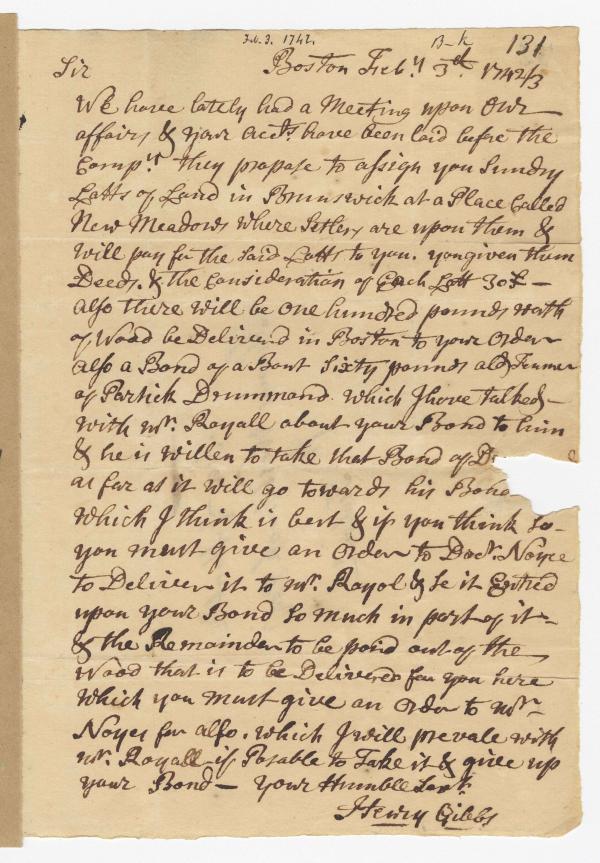 Feb. 3. 1742.
B-k
131
Boston Feb:y 3d. 1742/3
Sir
We have lately had a Meeting upon Our
affairs & your acct.s have been laid before the
Comp:y they propose to assign you Sundry
Lotts of Land in Brunswick at a Place Called
New Meadows where Setlers are upon them &
will pay for the Said Lotts to you. you given them
Deeds. & the Consideration of Each Lott 30£ -
also there will be one hundred pounds woth
of Wood be Deliverd in Boston to your Order
also a Bond of a Bout Sixty pounds old Tenner
of Partick Drummond. which I have talked -
with mr. Royall about your Bond to him
& he is willen to take that Bond of
as far as it will go towards his Bond
which I think is best & if you think So -
you must give an order to Doct. Noyce
to Deliver it to mr. Royol & Se it Entred
upon your Bond So much in part of it -
& the Remainder to be paid out of the
Wood that is to be Delivered for you here
which you must give an order to mr
Noyes for also. which I will prevale with
mr. Royall if Posable to Take it & give up
your Bond - your Humble Sert.
Henry Gibbs